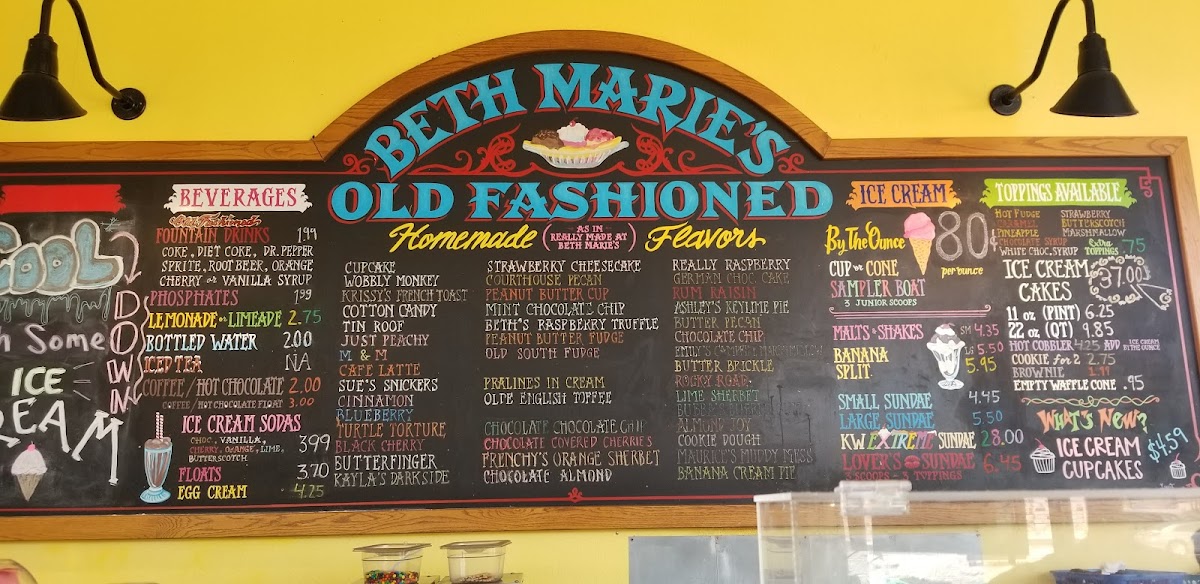 BETH MARIE'S
OLD FASHIONED
Homemade
AS IN
REALLY MADE AT
BETH MARIE'S
Flavors
COOL
DOWN
Some
ICE
CREAM
BEVERAGES
Old Fashioned
FOUNTAIN DRINKS 1.99
COKE, DIET COKE, DR. PEPPER
SPRITE, ROOT BEER, ORANGE
CHERRY or VANILLA SYRUP
PHOSPHATES 1.99
LEMONADE or LIMEADE 2.75
BOTTLED WATER 2.00
ICED TEA NA
COFFEE/HOT CHOCOLATE 2.00
COFFEE/HOT CHOCOLATE FLOAT 3.00
ICE CREAM SODAS
CHOC, VANILLA,
CHERRY, ORANGE, LIME,
BUTTERSCOTCH
3.99
FLOATS 3.70
EGG CREAM 4.25
CUPCAKE
WOBBLY MONKEY
KRISSY'S FRENCH TOAST
COTTON CANDY
TIN ROOF
JUST PEACHY
M & M
CAFE LATTE
SUE'S SNICKERS
CINNAMON
BLUEBERRY
TURTLE TORTURE
BLACK CHERRY
BUTTERFINGER
KAYLA'S DARKSIDE
STRAWBERRY CHEESECAKE
COURTHOUSE PECAN
PEANUT BUTTER CUP
MINT CHOCOLATE CHIP
BETH'S RASPBERRY TRUFFLE
PEANUT BUTTER FUDGE
OLD SOUTH FUDGE
PRALINES IN CREAM
OLDE ENGLISH TOFFEE
CHOCOLATE CHOCOLATE CHIP
CHOCOLATE COVERED CHERRIES
FRENCHY'S ORANGE SHERBET
CHOCOLATE ALMOND
REALLY RASPBERRY
GERMAN CHOC. CAKE
RUM RAISIN
ASHLEY'S KEYLIME PIE
BUTTER PECAN
CHOCOLATE CHIP
EMILY'S
BUTTER BRICKLE
ROCKY ROAD
LIME SHERBET
ALMOND JOY
COOKIE DOUGH
MAURICE'S MUDDY MISS
BANANA CREAM PIE
ICE CREAM
By The Ounce 80¢
per ounce
CUP or CONE
SAMPLER BOAT
3 JUNIOR SCOOPS
MALTS & SHAKES SM 4.35
LG 5.50
BANANA
SPLIT 5.95
SMALL SUNDAE 4.45
LARGE SUNDAE 5.50
KW EXTREME SUNDAE 28.00
LOVER'S SUNDAE 6.45
SCOOPS - 3 TOPPINGS
TOPPINGS AVAILABLE
HOT FUDGE
CARAMEL
PINEAPPLE
CHOCOLATE SYRUP
WHITE CHOC. SYRUP
STRAWBERRY
BUTTERSCOTCH
MARSHMALLOW
Extra
TOPPINGS .75
ICE CREAM
CAKES 37.00
11 oz (PINT) 6.25
22 oz (QT) 9.85
HOT COBBLER 4.25 ADD ICE CREAM
BY THE OUNCE
COOKIE for 2 2.75
BROWNIE
EMPTY WAFFLE CONE .95
WHAT'S NEW?
ICE CREAM
CUPCAKES
$4.59